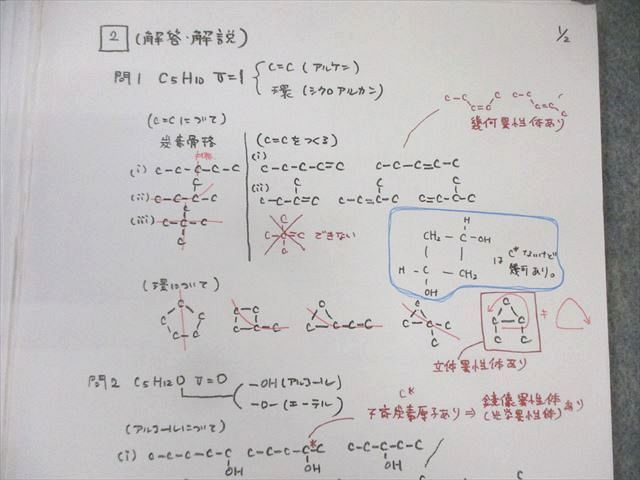 2 (解答・解説) 1/2
問1 C5H10 U=1 C=C (アルケン)
環 (シクロアルカン)
幾何異性体あり
(C=Cについて)
炭素骨格
(C=Cをつくる)
(i) C-C-C-C-C
(i) C-C-C-C=C C-C-C=C-C
(ii)
(ii) C-C-C=C C-C=C-C C=C-C-C
(iii)
できない
CH2-C-OH
H-C-CH2
OH
は C*ないけど
幾何あり。
(環について)
立体異性体あり
問2 C5H12O U=0 -OH (アルコール)
-O- (エーテル)
C*
不斉炭素原子あり ⇒ 鏡像異性体
(光学異性体) あり
(アルコールについて)
(i) C-C-C-C-C C-C-C-C-C C-C-C-C-C
OH OH OH